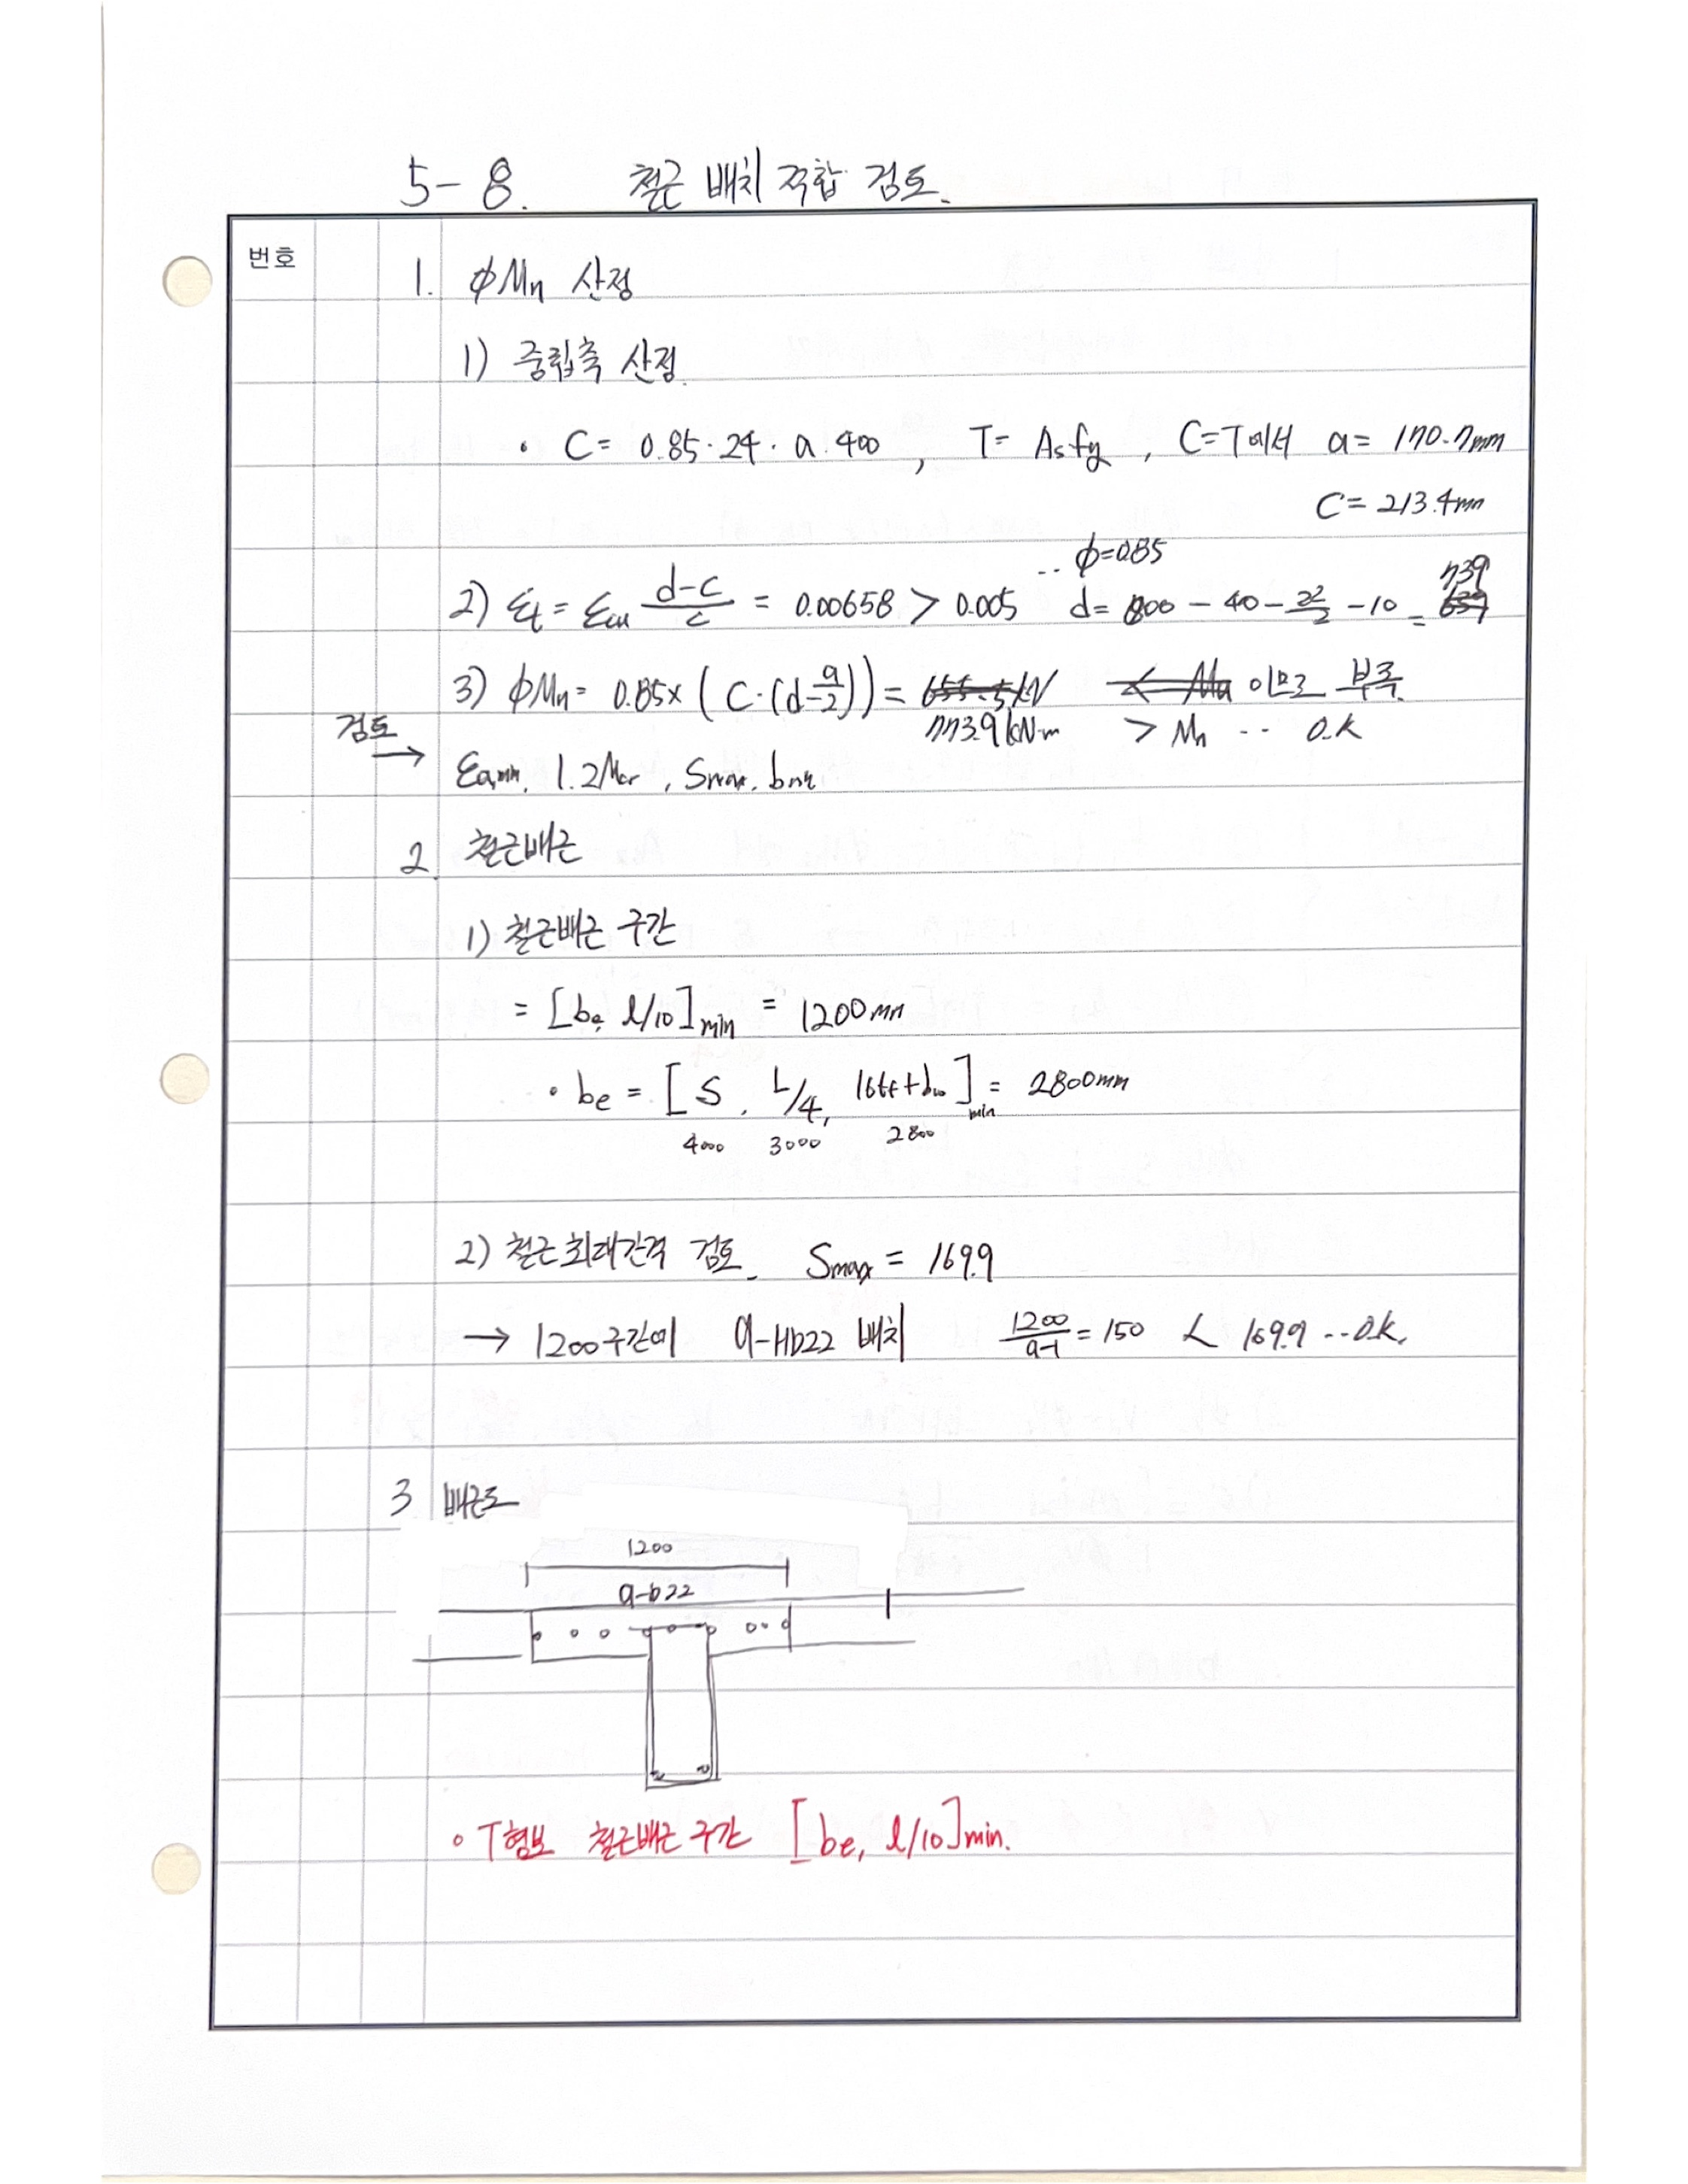 5-8. 철근 배치 적합 검토.
번호
1. ϕMn 산정
1) 중립축 산정.
• C= 0.85·24·a·400 , T= Asfy , C=T에서 a= 170.7mm
C= 213.4mm
‥ ϕ=0.85
2) εt = εcu (d-c)/c = 0.00658 > 0.005 d= 800 - 40 - 22/2 - 10 = 739
3) ϕMn= 0.85×(C·(d-a/2)) = 655.5kN < Mu 이므로 부족.
773.9kN·m > Mn ‥ O.K
검토 →
εa,min, 1.2Mcr, Smax, bmin
2. 철근배근
1) 철근배근 구간
= [be, l/10]min = 1200mm
• be = [S, L/4, 16tf+bw]min = 2800mm
4000 3000 2800
2) 철근최대간격 검토. Smax = 169.9
→ 1200구간에 9-HD22 배치 1200/9-1 = 150 < 169.9 ‥O.K.
3 배근도
1200
9-D22
• T형보 철근배근 구간 [be, l/10]min.